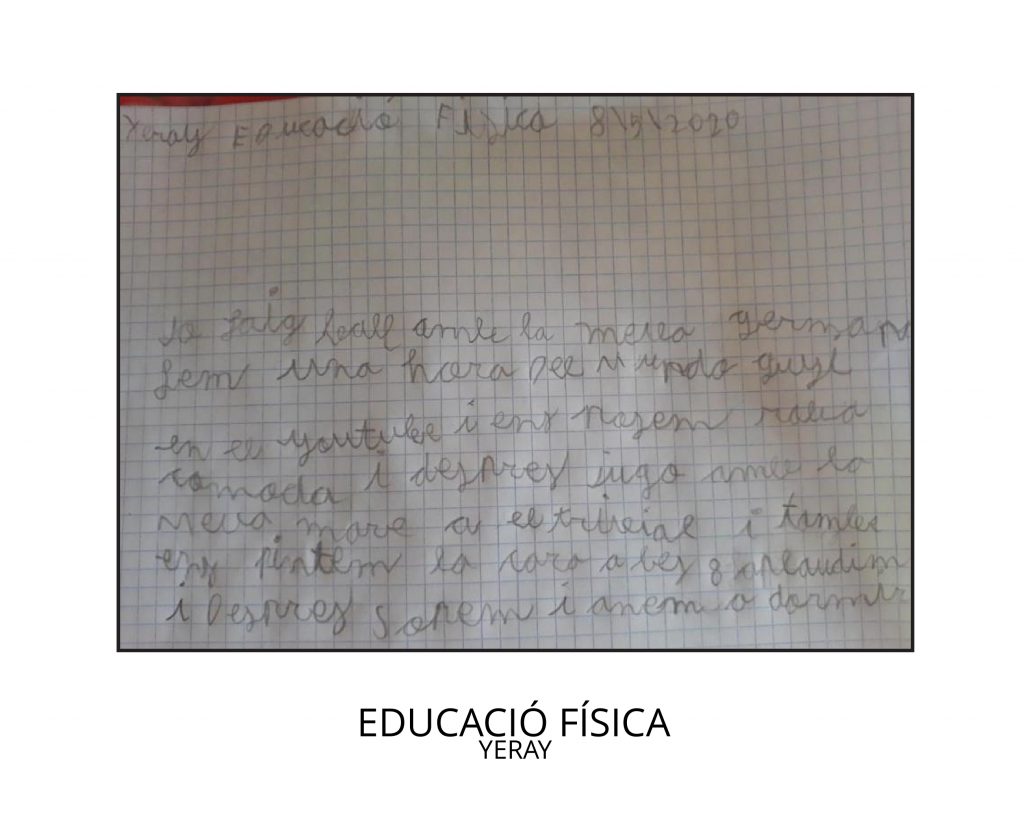 Yeray Educació Física 8\5\2020
Jo faig ball amb la meva germana
fem una hora del mundo guyl
en el youtube i ens posem roba
comoda i despres jugo amb la
meva mare a el tribial i tambe
ens pintem la cara a les 8 aplaudim
i Despres Sopem i anem a dormir
EDUCACIÓ FÍSICA
YERAY